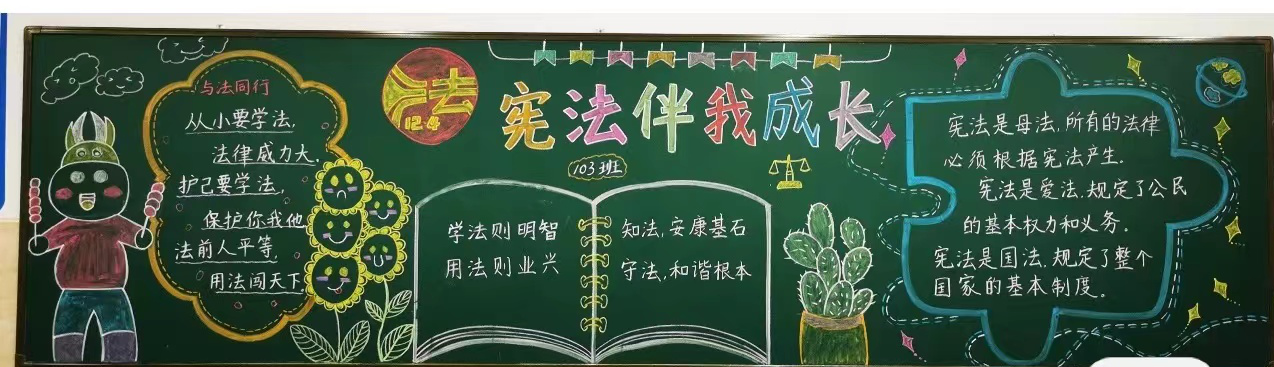 与法同行
从小要学法,
法律威力大.
护己要学法,
保护你我他
法前人平等,
用法闯天下
法
12.4
宪法伴我成长
103班
学法则明智
用法则业兴
知法,安康基石
守法,和谐根本
宪法是母法,所有的法律
必须根据宪法产生.
宪法是爱法.规定了公民
的基本权力和义务。
宪法是国法.规定了整个
国家的基本制度。